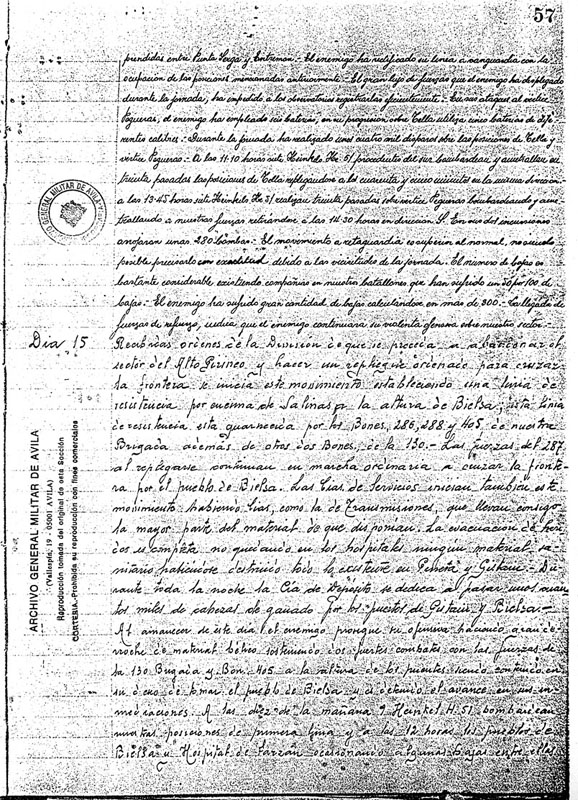 57
prendidas entre Punta Serga y Entremon.- El enemigo ha rectificado su linea a vanguardia con la
ocupación de las posiciones mencionadas anteriormente.- El gran lujo de fuerzas que el enemigo ha desplegado
durante la jornada, ha impedido a los observatorios registrarlas eficientemente.- En sus ataques al vértice
Pegueras, el enemigo ha empleado seis baterías, en su progresión sobre Tella utiliza cinco baterías de dife-
rentes calibres.- Durante la jornada ha realizado unos cuatro mil disparos sobre las posiciones de Tella y
vértice Pegueras.- A las 11-10 horas siete Heinkels He 51 procedentes del sur bombardean y ametrallan en
treinta pasadas las posiciones de Tella replegandose a los cuarenta y cinco minutos en la misma dirección
a las 13-45 horas siete Heinkels He 51 realizan treinta pasadas sobre vértice Pegueras bombardeando y ame-
trallando a nuestras fuerzas retirandose a las 14-30 horas en direccion S. En sus dos incursiones
arrojaran unas 280 bombas.- El movimiento a retaguardia es superior al normal, no siendo
posible precisarlo con exactitud debido a las vicisitudes de la jornada. El número de bajas es
bastante considerable existiendo compañías en nuestro batallones que han sufrido un 50 por 100 de
bajas.- El enemigo ha sufrido gran cantidad de bajas calculandose en mas de 300.- La llegada de
fuerzas de refuerzo, indica que el enemigo continuara su violenta ofensiva sobre nuestro sector.-
Dia 15
Recibidas ordenes de la Division de que se proceda a abandonar el
sector del Alto Pirineo y hacer un repliegue ordenado para cruzar
la frontera se inicia este movimiento estableciendo una linea de
resistencia por encima de Salinas a la altura de Bielsa; esta linea
de resistencia esta guarnecida por los Bones, 286, 288 y 405 de nuestra
Brigada además de otros dos Bones, de la 130.- Las fuerzas del 287
al replegarse continuan en marcha ordinaria a cruzar la fronte-
ra por el pueblo de Bielsa. Las Cias de Servicios inician tambien este
movimiento habiendo Cias, como la de Transmisiones, que llevan consigo
la mayor parte del material de que disponian. La evacuacion de heri-
dos es completa no quedando en los hospitales ningun material sa-
nitario habiendose destruido todo lo existente en y Gistain.- Du-
rante toda la noche la Cia de Depósito se dedica a pasar unos cuan-
tos miles de cabezas de ganado por los puertos de Gistain y Bielsa.-
Al amanecer de este dia el enemigo prosigue su ofensiva haciendo gran de-
rroche de material belico sosteniendo dos fuertes combates con las fuerzas de
la 130 Brigada y Bon. 405 a la altura de los puentes siendo contenido en
su deseo de tomar el pueblo de Bielsa y detenido el avance en sus in-
mediaciones. A las diez de la mañana 9 Heinkel H. 51 bombardean
nuestras posiciones de primera linea y a las 12 horas los pueblos de
Bielsa y Hospital de Parzan ocasionando algunas bajas entre ellas
ARCHIVO GENERAL MILITAR DE AVILA
(Vallespín, 19 - 05001 AVILA)
Reproducción tomada del original de esta Sección
CORTESIA.-Prohibida su reproducción con fines comerciales
GENERAL MILITAR DE AVILA